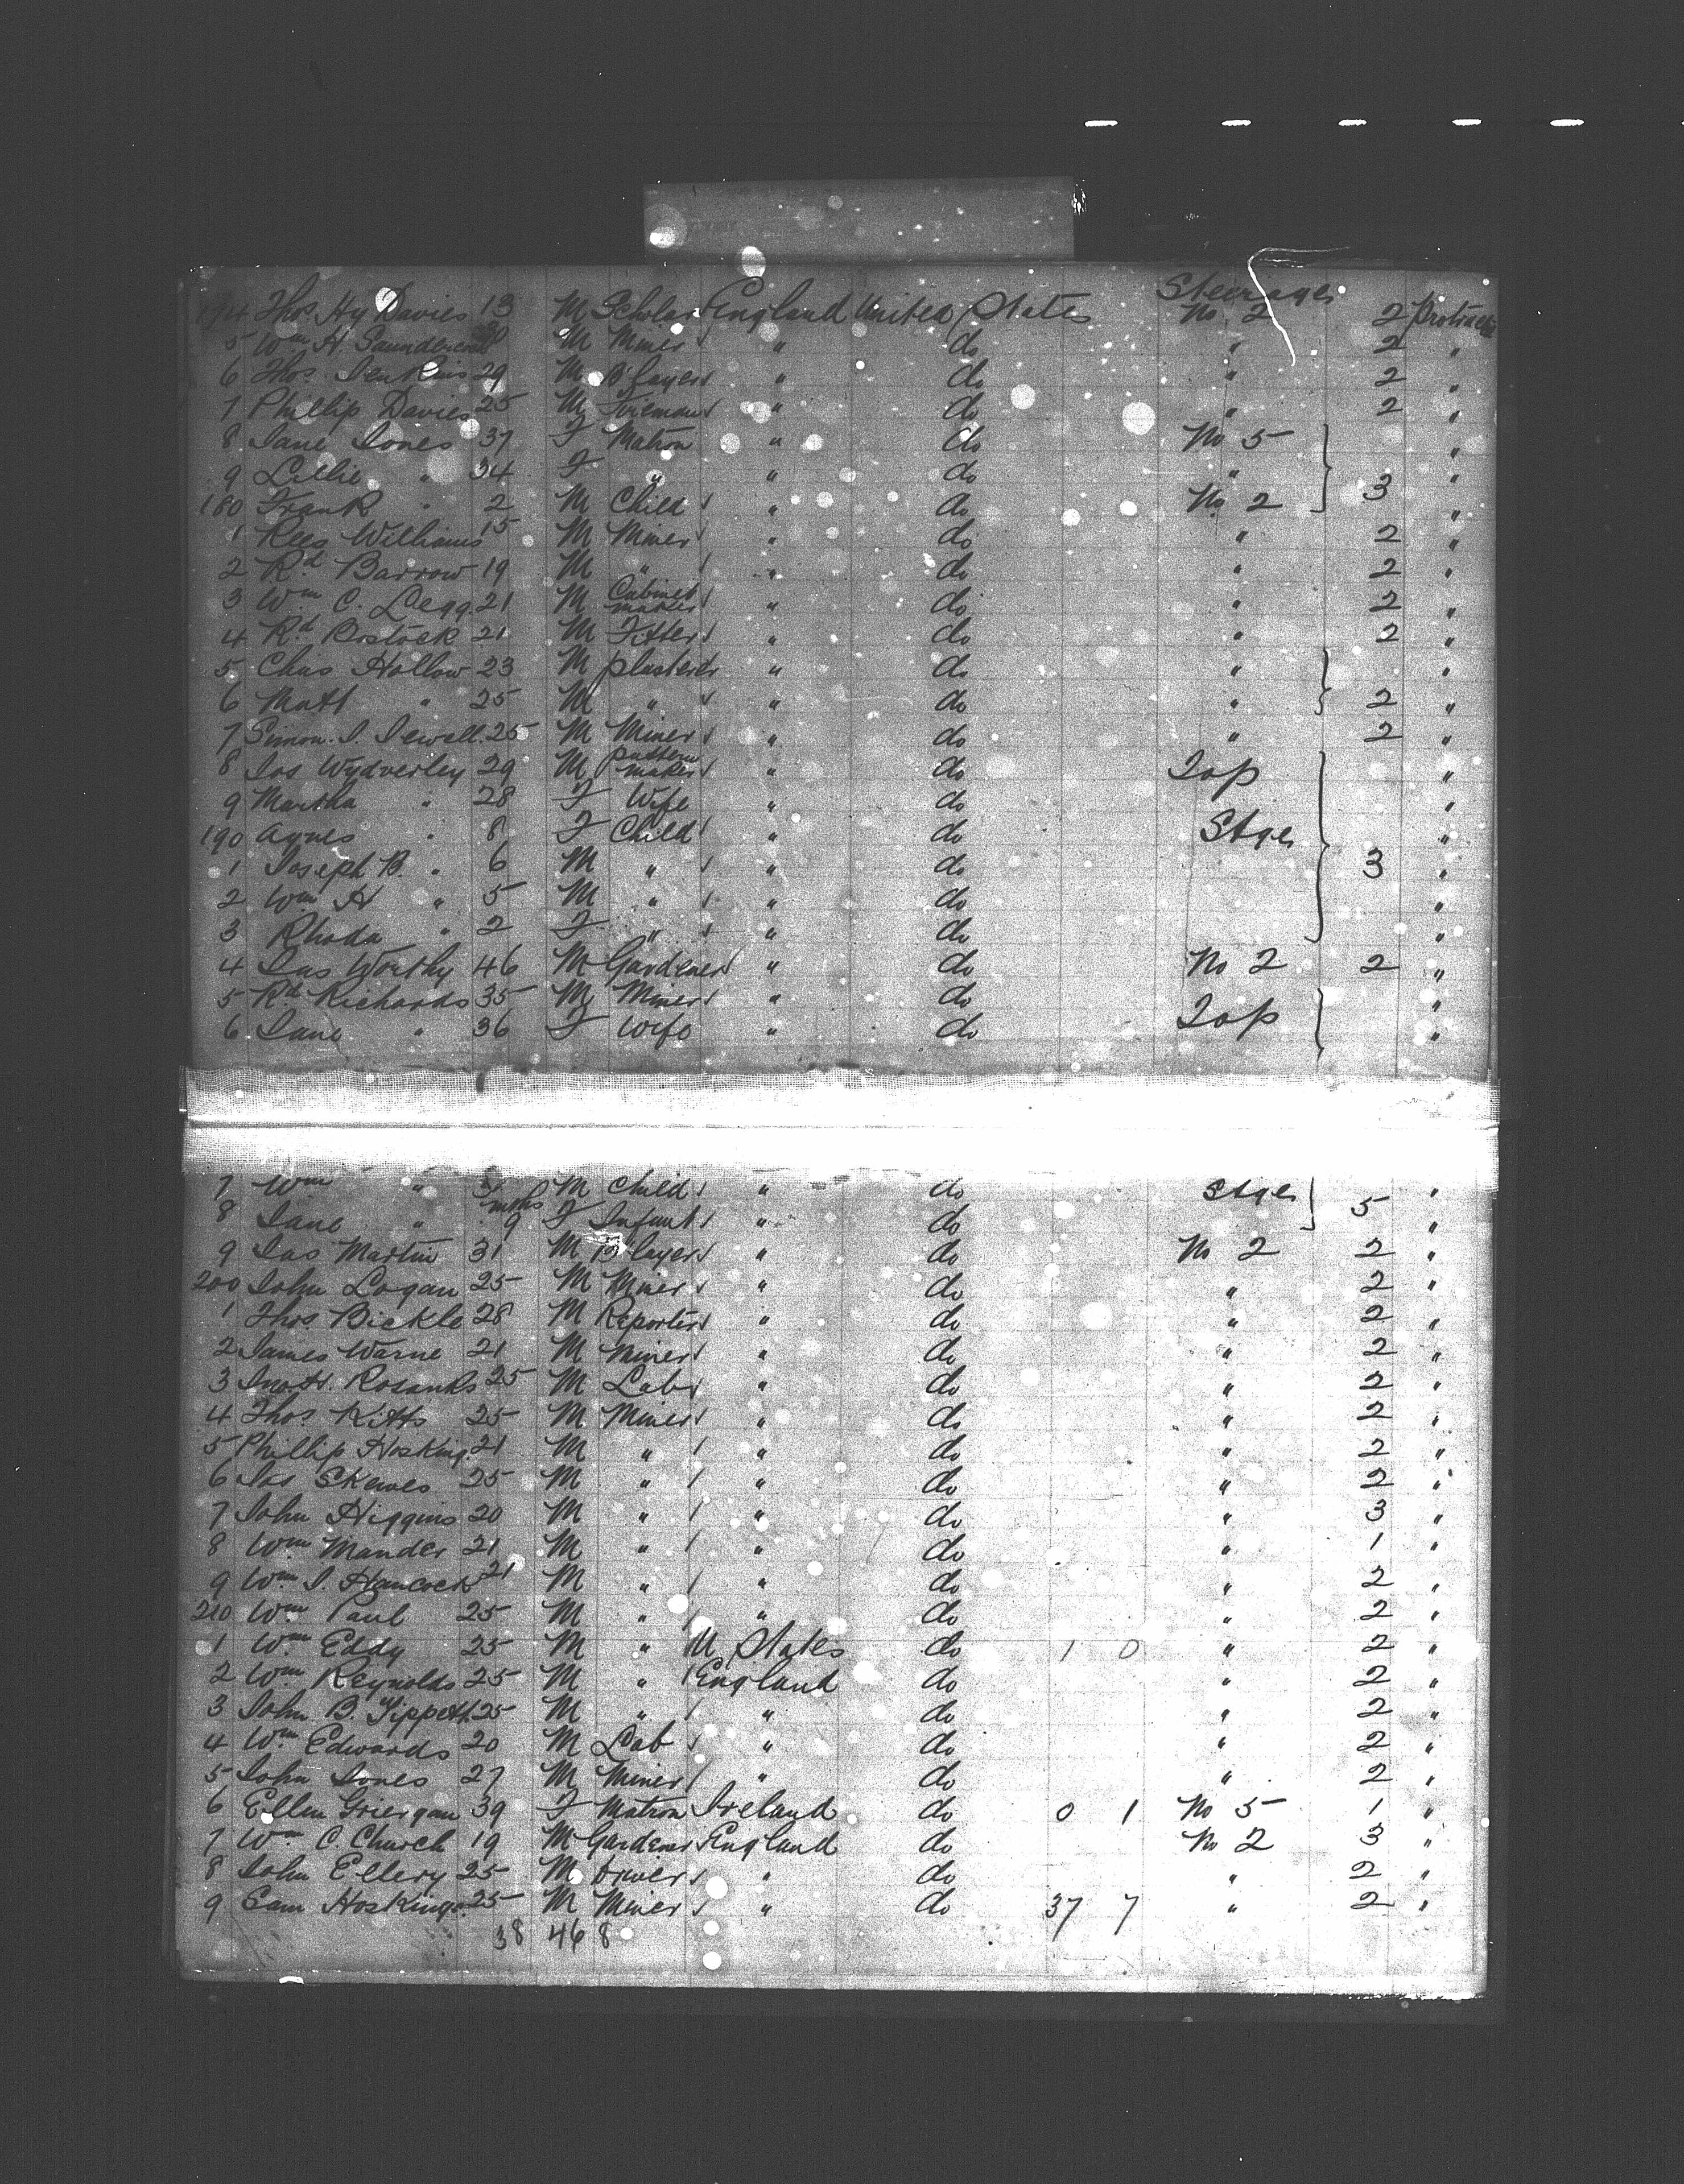 174 Thos Hy Davies 13 M Scholar England United States Steerage No. 2 2 Protracted
5 Wm H. Saundercock M Miner " do " 2 "
6 Thos. Jenkins 29 M B'layer " do " 2 "
7 Phillip Davies 25 M Fireman " do " 2 "
8 Jane Jones 37 F Matron " do No 5 "
9 Lillie " F " " do " "
180 Frank " 2 M Child " do No 2 3 "
1 Rees Williams 15 M Miner " do " 2 "
2 Rd Barrow 19 M " " do " 2 "
3 Wm C. Legg 21 M Cabinet maker " do " 2 "
4 Rd Bostock 21 M Fitter " do " 2 "
5 Chas Hollow 23 M plasterer " do " "
6 Matt " 25 M " " do " 2 "
7 Simon. J. Jewell. 25 M Miner " do " 2 "
8 Jos Wydverley 29 M pattern maker " do Top "
9 Martha " 28 F Wife " do "
190 Agnes " 8 F Child " do Stge "
1 Joseph B. " 6 M " " do 3 "
2 Wm H " 5 M " " do "
3 Rhoda " 2 F " " do "
4 Jas Worthy 46 M Gardener " do No 2 2 "
5 Rd Richards 35 M Miner " do Top "
6 Jane " 36 F Wife " do "
7 Wm " M Child " do Stge 5 "
8 Jane " mths 9 F Infant " do "
9 Jas Martin 31 M B'layer " do No 2 2 "
200 John Logan 25 M Miner " do " 2 "
1 Thos Bickle 28 M Reporter " do " 2 "
2 James Warne 21 M Miner " do " 2 "
3 Jno. H. Rosanks 25 M Lab " do " 2 "
4 Thos Kitts 25 M Miner " do " 2 "
5 Phillip Hosking. 21 M " " do " 2 "
6 Jas Skewes 25 M " " do " 2 "
7 John Higgins 20 M " " do " 3 "
8 Wm Mander 21 M " " do " 1 "
9 Wm J. Hancock 21 M " " do " 2 "
210 Wm Paul 25 M " " do " 2 "
1 Wm Eddy 25 M " U States do 1 0 " 2 "
2 Wm Reynolds 25 M " England do " 2 "
3 John B. Tippett 25 M " " do " 2 "
4 Wm Edwards 20 M Lab " do " 2 "
5 John Jones 27 M Miner " do " 2 "
6 Ellen Griergan 39 F Matron Ireland do 0 1 No 5 1 "
7 Wm C. Church 19 M Gardener England do No 2 3 "
8 John Ellery 25 M Driver " do " 2 "
9 Sam Hosking. 25 M Miner " do 37 7 " 2 "
38 46 8